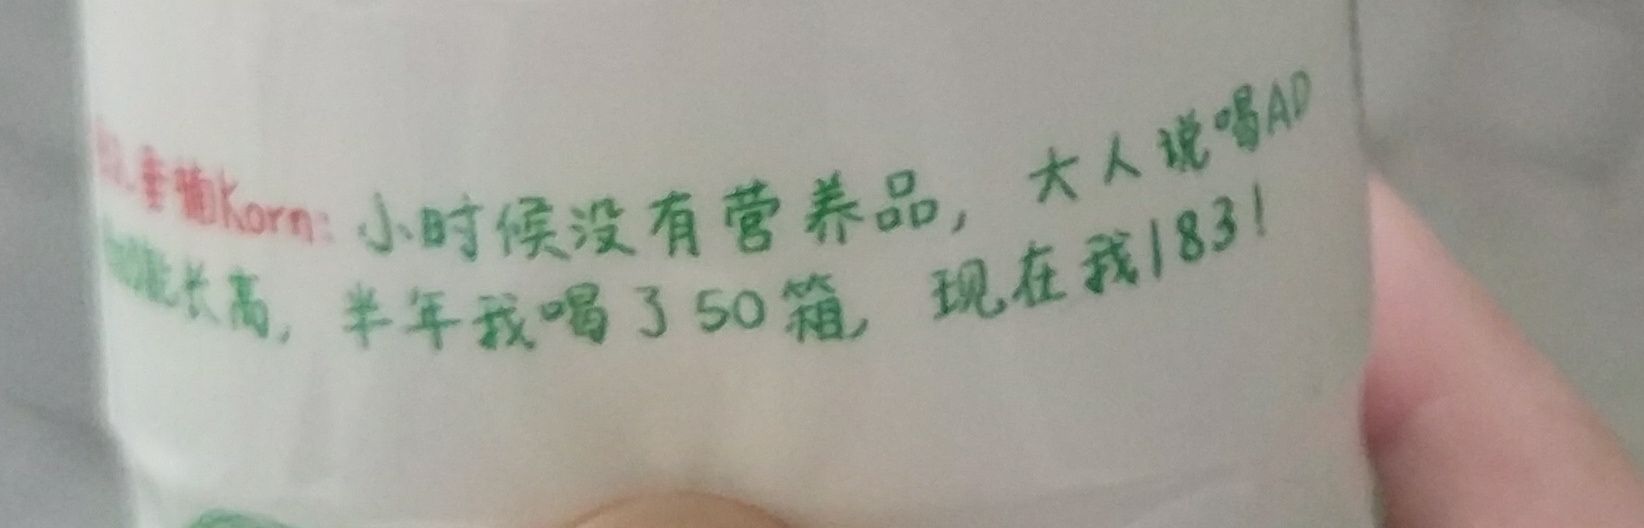 Korn: 小时候没有营养品，大人说喝AD
能长高，半年我喝了50箱，现在我183!